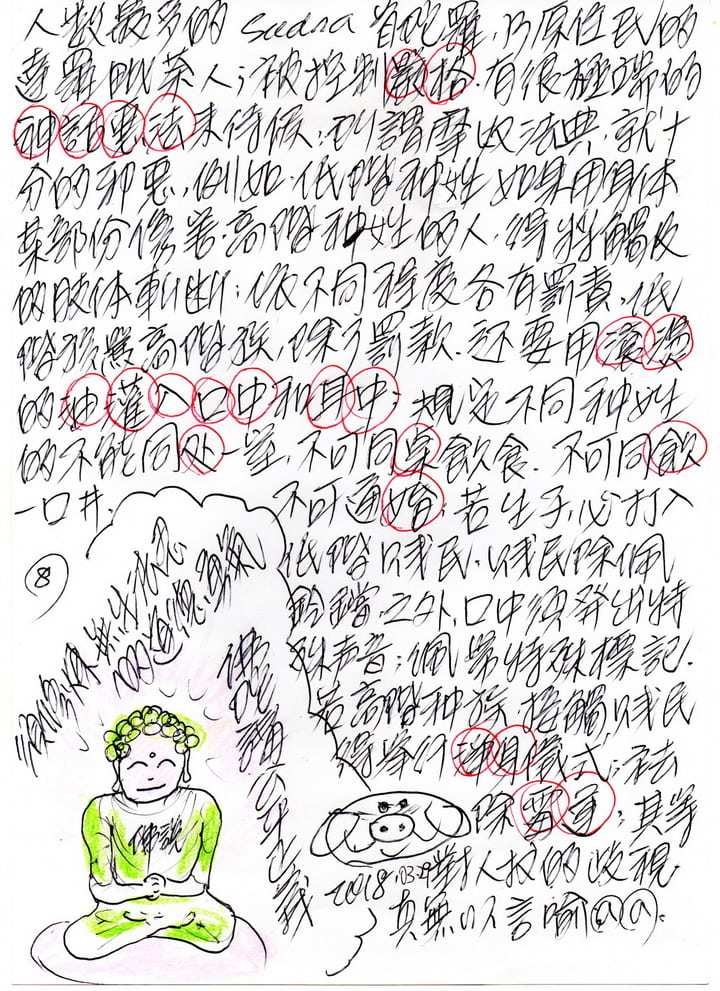 人数最多的 Sudra 首陀羅,乃原住民的
達羅毗荼人;被控制嚴格.有很極端的
神話惡法来待候;到謂摩奴法典,就十
分的邪惡,例如.低階种姓如果用身体
某部份傷害高階种姓的人,得将觸及
的肢体斬断;依不同程度各有罰責,低
階族罵高階族,除了罰款.还要用滾燙
的油灌入口中和耳中;規定不同种姓
的不能同处一室,不可同桌飲食.不可同飲
一口井;不可通婚;若生子,必打入
低階賤民,賤民除佩
鈴鐺之外,口中須発出特
殊声音;佩帶特殊標記.
若高階种族接觸賤民
得举行淨身儀式,祛
除霉運;其等
對人权的歧視
真無以言喻
2018.03.29
⑧
佛說
佛陀講公平正義